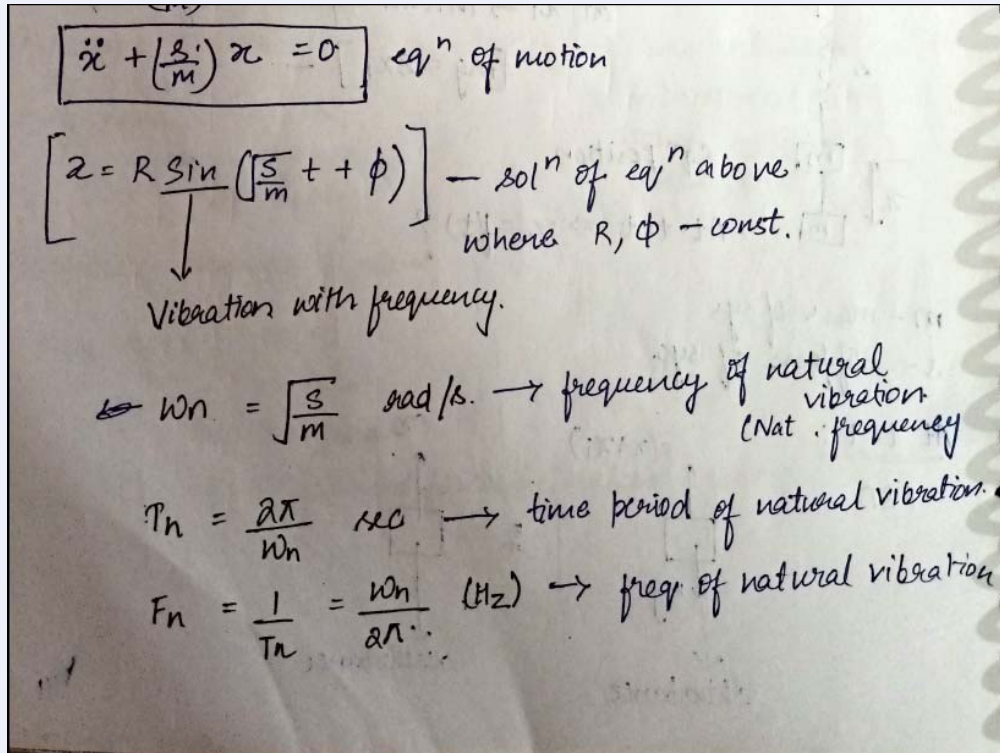 ẍ + (s/m) x = 0 eqⁿ of motion
[x = R Sin (√s/m t + φ)] – solⁿ of eqⁿ above
where R, φ – const.
Vibration with frequency.
Wn = √s/m rad/s. → frequency of natural
vibration
(Nat. frequency
Tn = 2π/Wn sec → time period of natural vibration.
Fn = 1/Tn = Wn/2π (Hz) → freq. of natural vibration